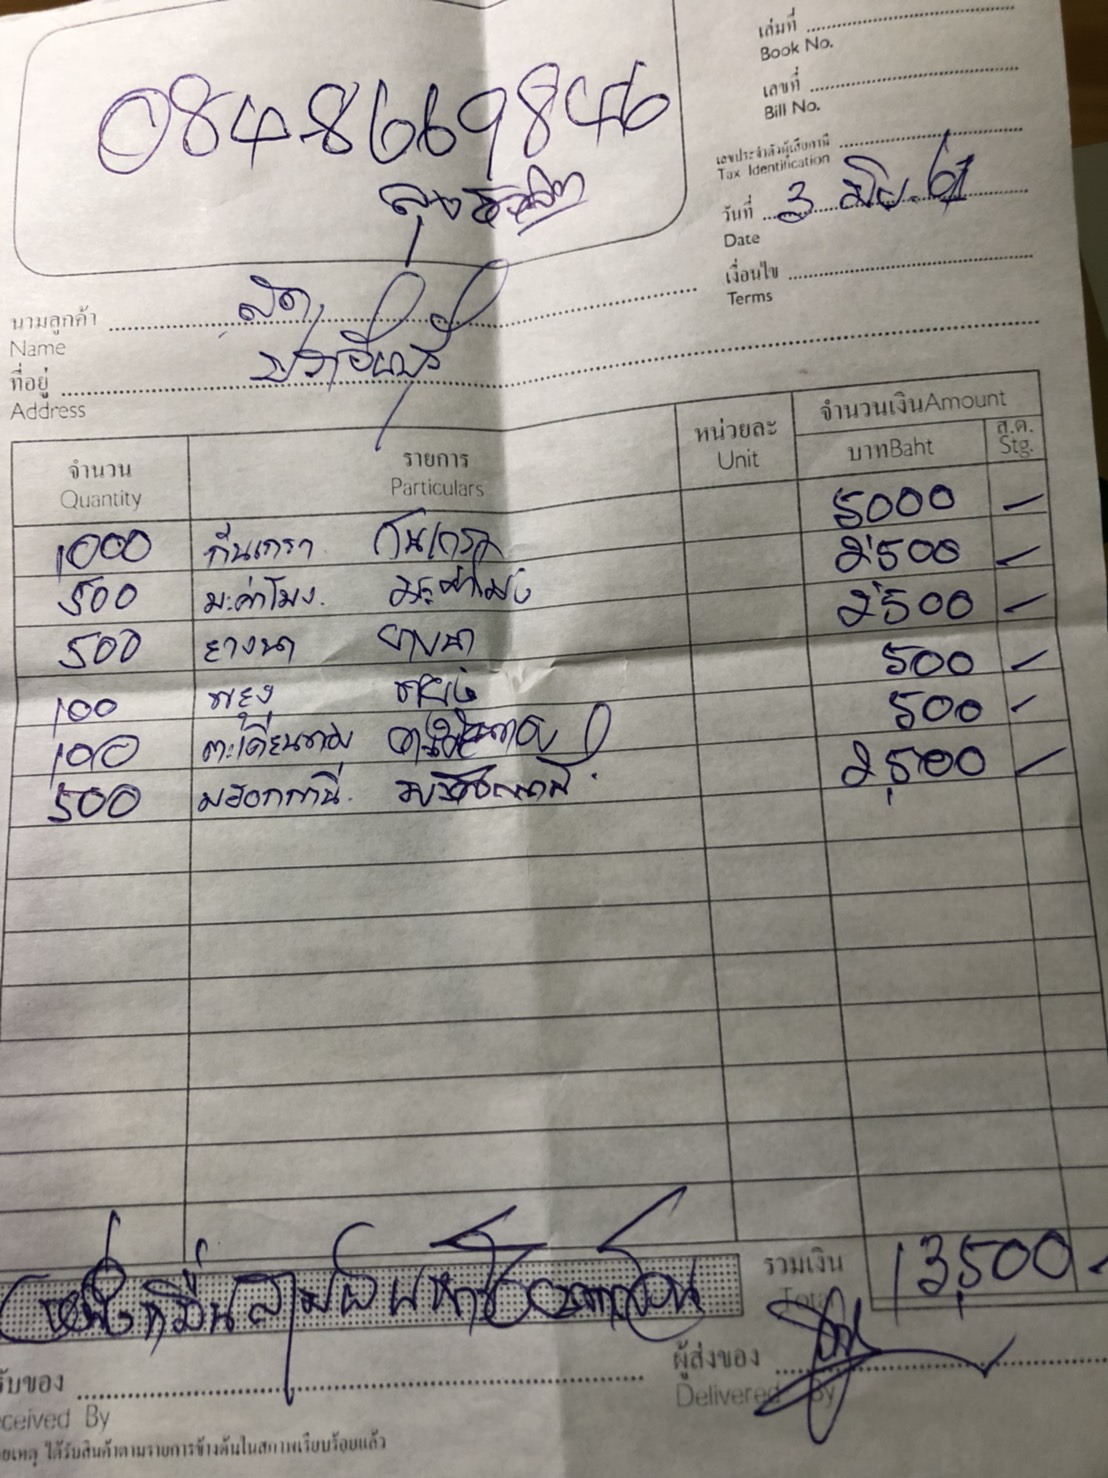 เล่มที่
Book No.
0848669846
เลขที่
Bill No.
เลขประจำตัวผู้เสียภาษี
Tax Identification
ลุง
วันที่ 3 มิย. 61
Date
เงื่อนไข
Terms
นามลูกค้า สด
Name
ที่อยู่ ปราจีนบุรี
Address
จำนวน รายการ หน่วยละ จำนวนเงินAmount
Quantity Particulars Unit บาทBaht ส.ต. Stg.
1000 กันเกรา กันเกรา 5000 -
500 มะค่าโมง. มะค่าโมง 2500 -
500 ยางนา ยางนา 2500 -
100 พะยุง พะยุง 500 -
100 ตะเคียนทอง ตะเคียนทอง 500 -
500 มฮอกกานี. 2,500 -
หนึ่งหมื่นสามพันห้าร้อยบาทถ้วน รวมเงิน 13,500 -
Total
รับของ ผู้ส่งของ
ceived By Delivered By
ยเหตุ ได้รับสินค้าตามรายการข้างต้นในสภาพเรียบร้อยแล้ว